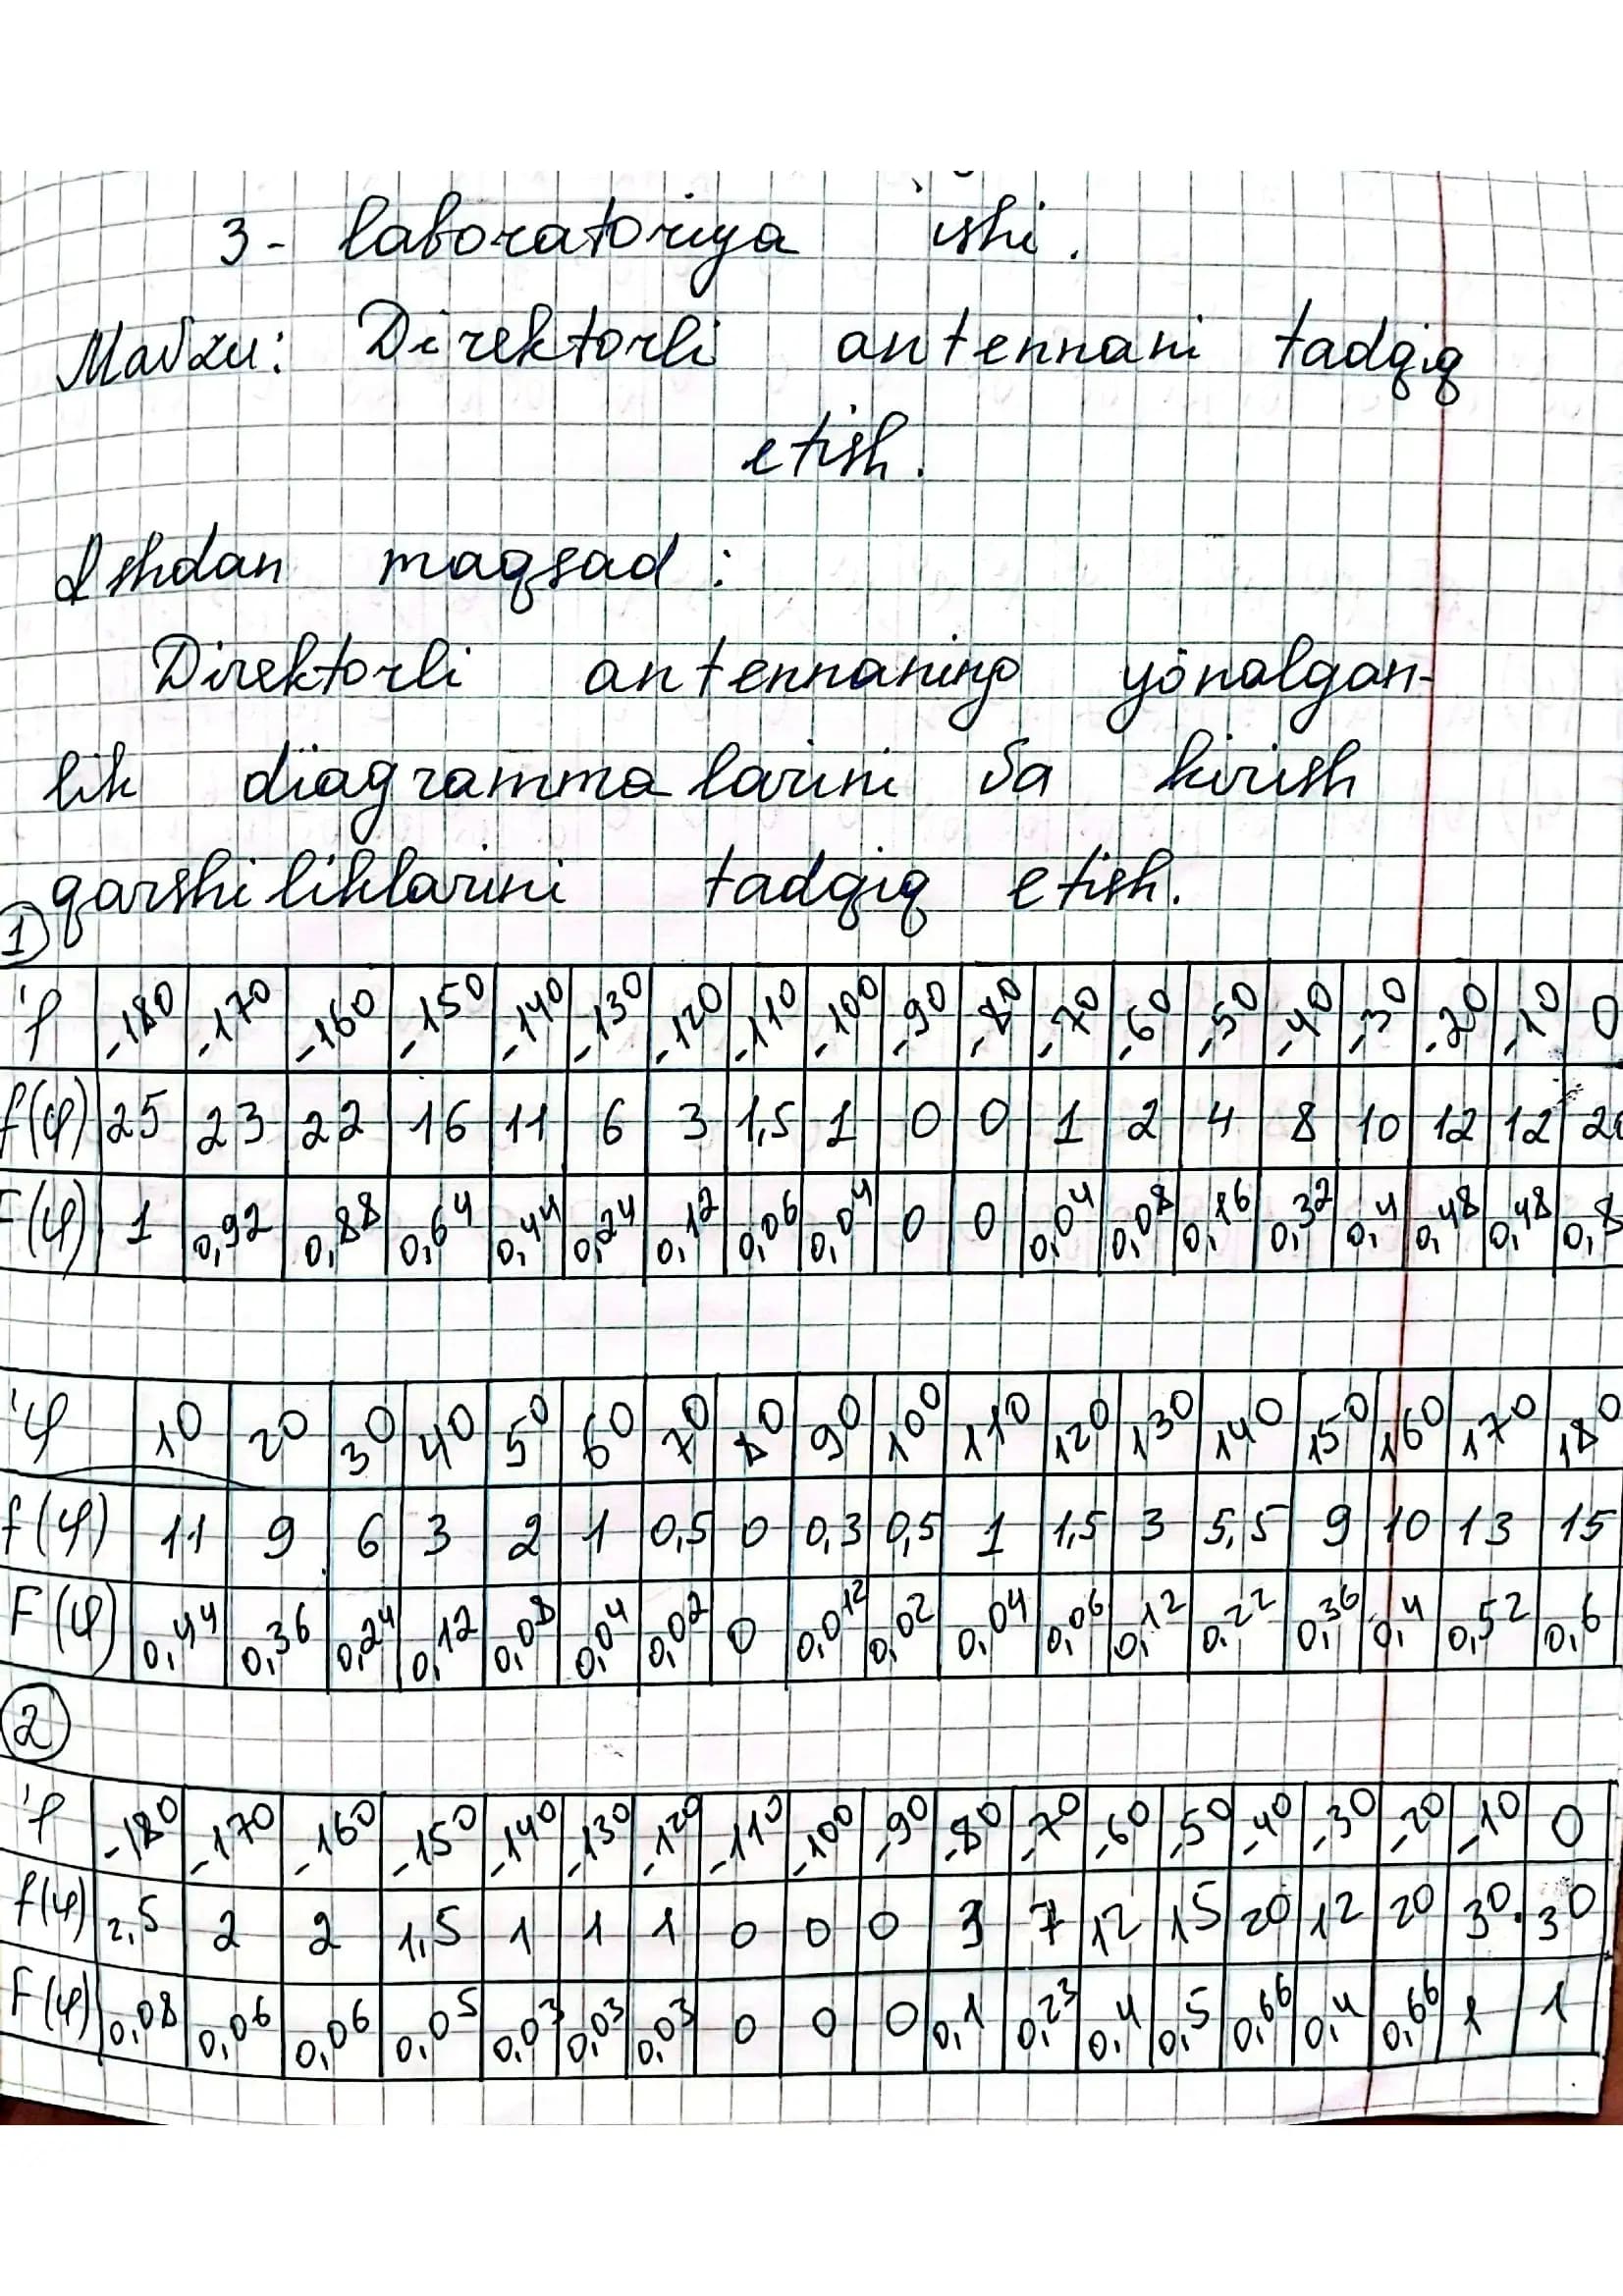 3- laboratoriya ishi.
Mavzu: Direktorli antennani tadqiq
etish.
Ishdan maqsad:
Direktorli antennaning yönalgan-
lik diagrammalarini va kirish
qarshiliklarini tadqiq etish.
1)
φ -180 -170 -160 -150 -140 -130 -120 -110 -100 -90 -80 -70 -60 -50 -40 -30 -20 -10 0
f(φ) 25 23 22 16 11 6 3 1,5 1 0 0 1 2 4 8 10 12 12
F(φ) 1 0,92 0,88 0,64 0,44 0,24 0,12 0,06 0,04 0 0 0,04 0,08 0,16 0,32 0,4 0,48 0,48 0,8
φ 10 20 30 40 50 60 70 80 90 100 110 120 130 140 150 160 170 180
f(φ) 11 9 6 3 2 1 0,5 0 0,3 0,5 1 1,5 3 5,5 9 10 13 15
F(φ) 0,44 0,36 0,24 0,12 0,08 0,04 0,02 0 0,012 0,02 0,04 0,06 0,12 0,22 0,36 0,4 0,52 0,6
2
φ -180 -170 -160 -150 -140 -130 -120 -110 -100 -90 -80 -70 -60 -50 -40 -30 -20 -10 0
f(φ) 2,5 2 2 1,5 1 1 1 0 0 0 3 7 12 15 20 12 20 30 30
F(φ) 0,08 0,06 0,06 0,05 0,03 0,03 0,03 0 0 0 0,1 0,23 0,4 0,5 0,66 0,4 0,66 1 1